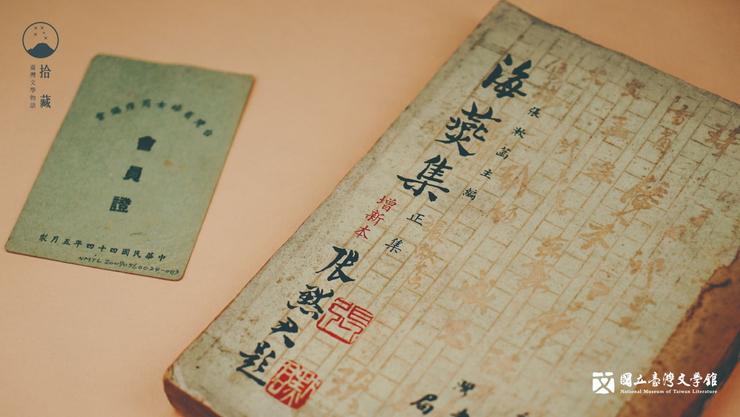 拾藏
臺灣文學物語
台灣省婦女寫作協會
會員證
中華民國四十四年五月製
海燕集
張漱菡主編
正集
增新本
張默君題
國立臺灣文學館
National Museum of Taiwan Literature